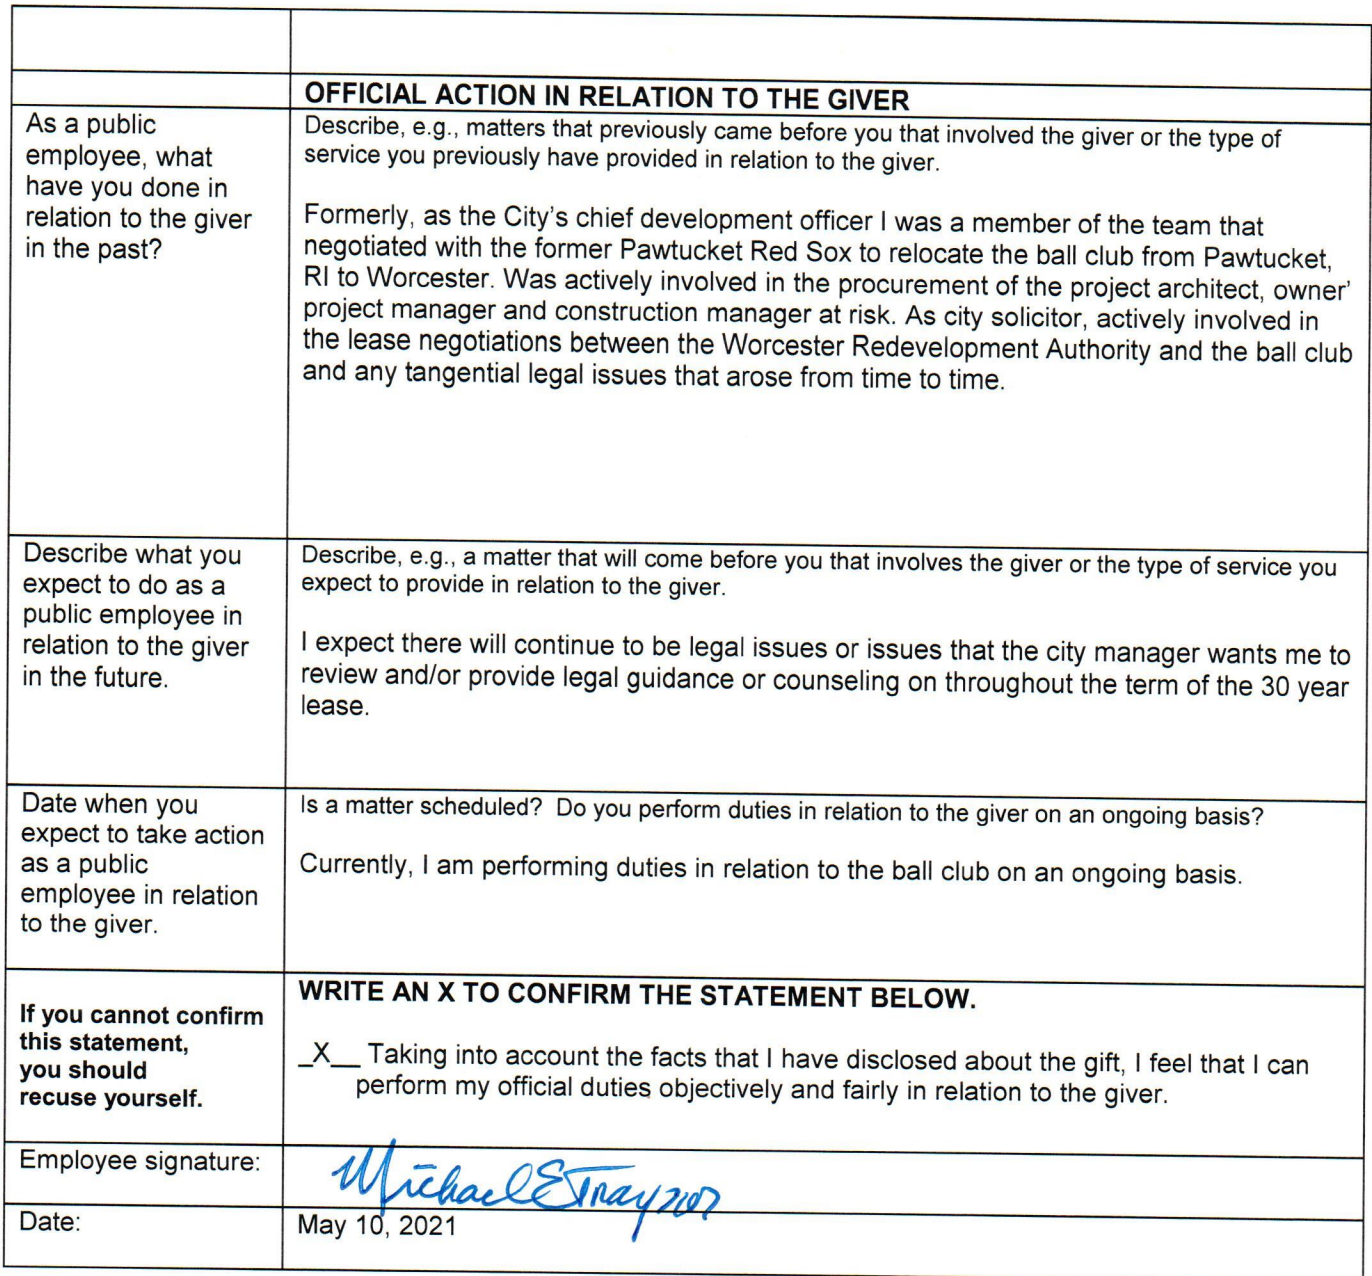 OFFICIAL ACTION IN RELATION TO THE GIVER
As a public
employee, what
have you done in
relation to the giver
in the past?
Describe, e.g., matters that previously came before you that involved the giver or the type of
service you previously have provided in relation to the giver.
Formerly, as the City's chief development officer I was a member of the team that
negotiated with the former Pawtucket Red Sox to relocate the ball club from Pawtucket,
RI to Worcester. Was actively involved in the procurement of the project architect, owner'
project manager and construction manager at risk. As city solicitor, actively involved in
the lease negotiations between the Worcester Redevelopment Authority and the ball club
and any tangential legal issues that arose from time to time.
Describe what you
expect to do as a
public employee in
relation to the giver
in the future.
Describe, e.g., a matter that will come before you that involves the giver or the type of service you
expect to provide in relation to the giver.
I expect there will continue to be legal issues or issues that the city manager wants me to
review and/or provide legal guidance or counseling on throughout the term of the 30 year
lease.
Date when you
expect to take action
as a public
employee in relation
to the giver.
Is a matter scheduled? Do you perform duties in relation to the giver on an ongoing basis?
Currently, I am performing duties in relation to the ball club on an ongoing basis.
If you cannot confirm
this statement,
you should
recuse yourself.
WRITE AN X TO CONFIRM THE STATEMENT BELOW.
_X__ Taking into account the facts that I have disclosed about the gift, I feel that I can
perform my official duties objectively and fairly in relation to the giver.
Employee signature:
Michael E Traynor
Date:
May 10, 2021